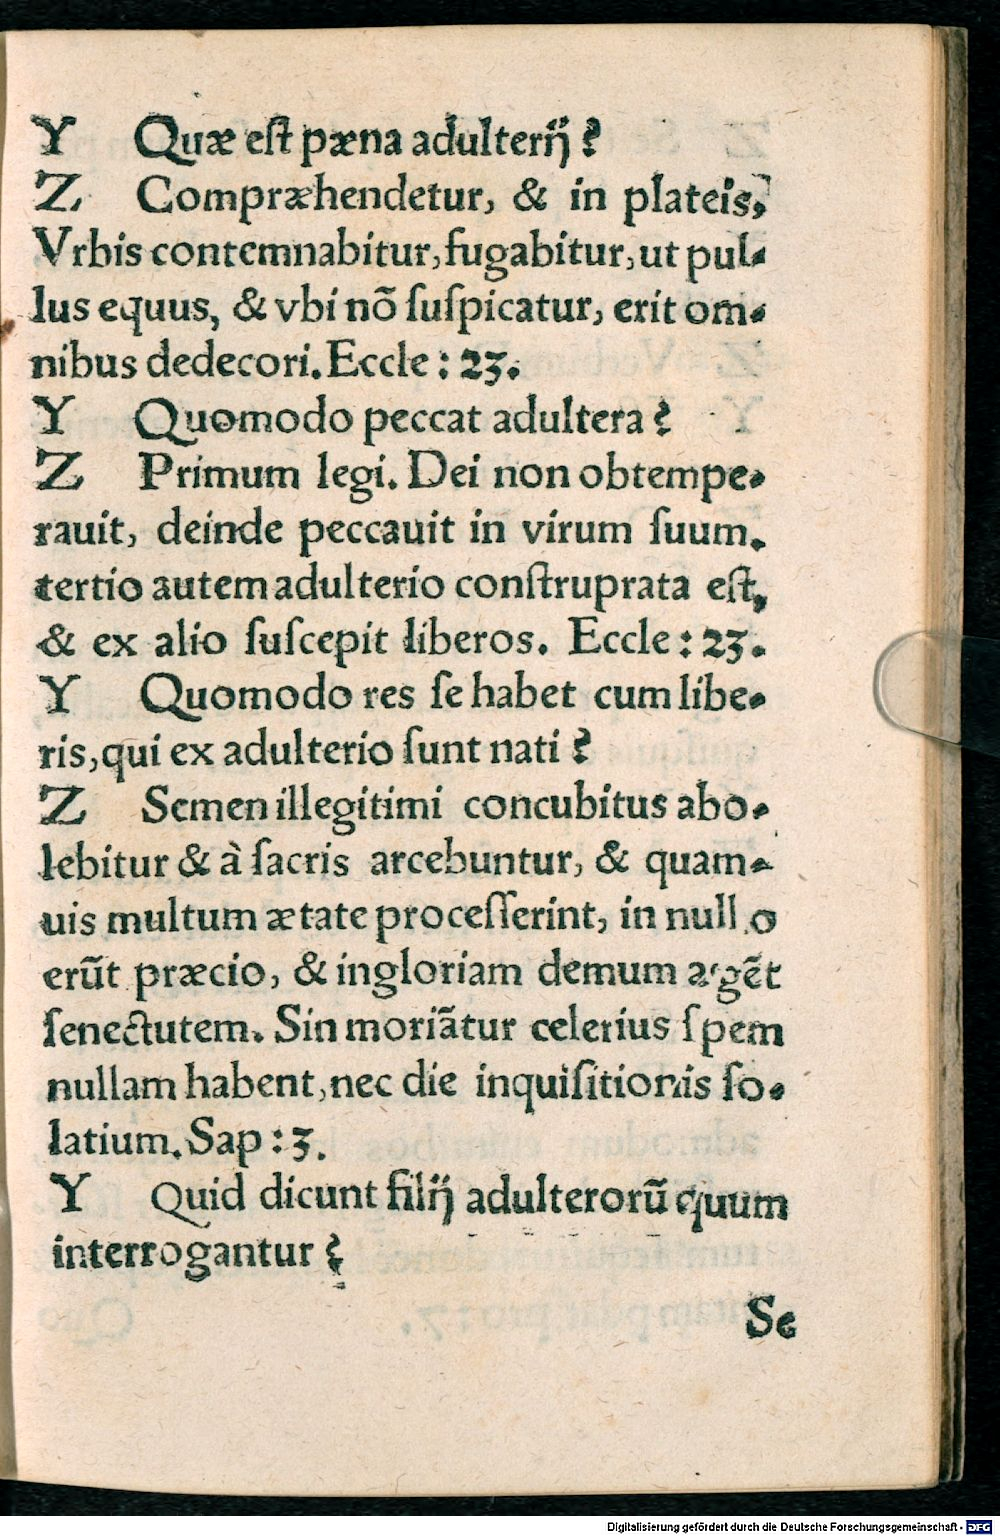 Y Quæ eſt pæna adulterĳ̈ ?
Z Compræhendetur, & in plateis,
Vrbis contemnabitur, fugabitur, ut pul-
lus equus, & vbi nõ ſuſpicatur, erit om-
nibus dedecori. Eccle : 23.
Y Quomodo peccat adultera ?
Z Primum legi. Dei non obtempe-
rauit, deinde peccauit in virum ſuum.
tertio autem adulterio conſtruprata eſt,
& ex alio ſuſcepit liberos. Eccle : 23.
Y Quomodo res ſe habet cum libe-
ris, qui ex adulterio ſunt nati ?
Z Semen illegitimi concubitus abo-
lebitur & à ſacris arcebuntur, & quam-
uis multum ætate proceſſerint, in null o
erũt præcio, & ingloriam demum agẽt
ſenectutem. Sin moriãtur celerius ſpem
nullam habent, nec die inquiſitionis ſo-
latium. Sap : 3.
Y Quid dicunt filĳ̈ adulterorũ quum
interrogantur ?
Se
Digitalisierung gefördert durch die Deutsche Forschungsgemeinschaft - DFG